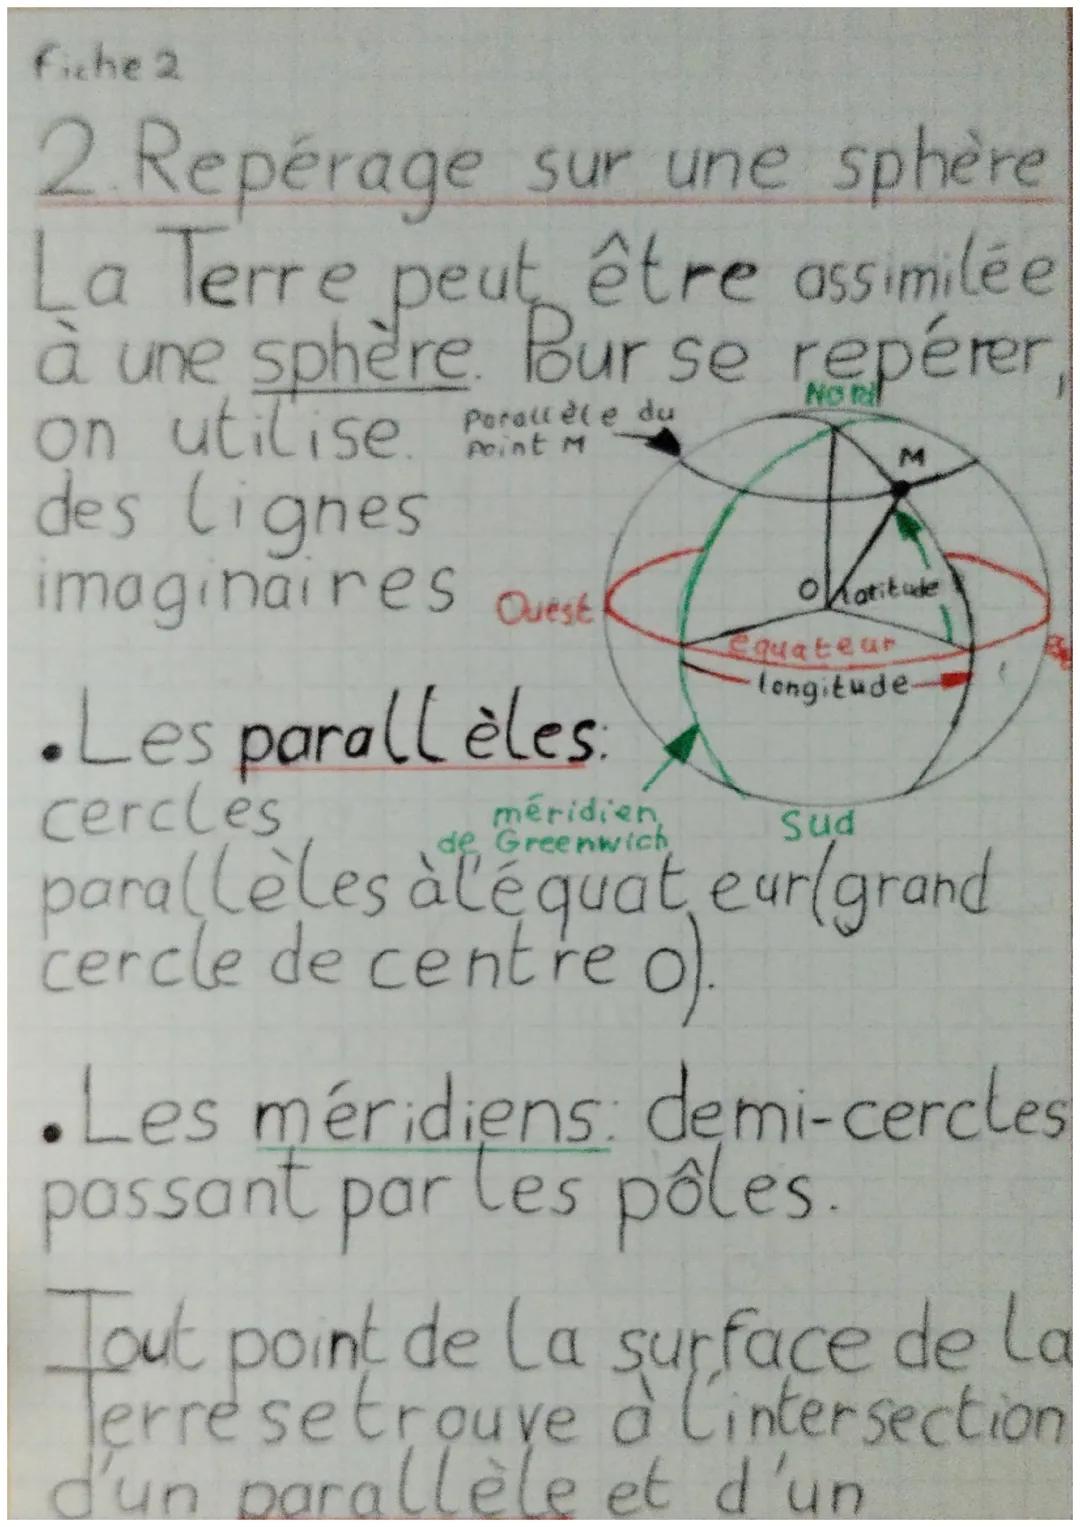 Fiche 2
2. Repérage sur une sphère
La Terre peut être assimilée
à une sphère. Pour se repérer,
on utilise
des lignes
imaginaires
Nord
Parallèle du
point M
M
O
latitude
Ouest
équateur
longitude
méridien
de Greenwich
Sud
• Les parallèles:
cercles
parallèles à l'équateur (grand
cercle de centre O).
• Les méridiens: demi-cercles
passant par les pôles.
Tout point de la surface de la
Terre se trouve à l'intersection
d'un parallèle et d'un